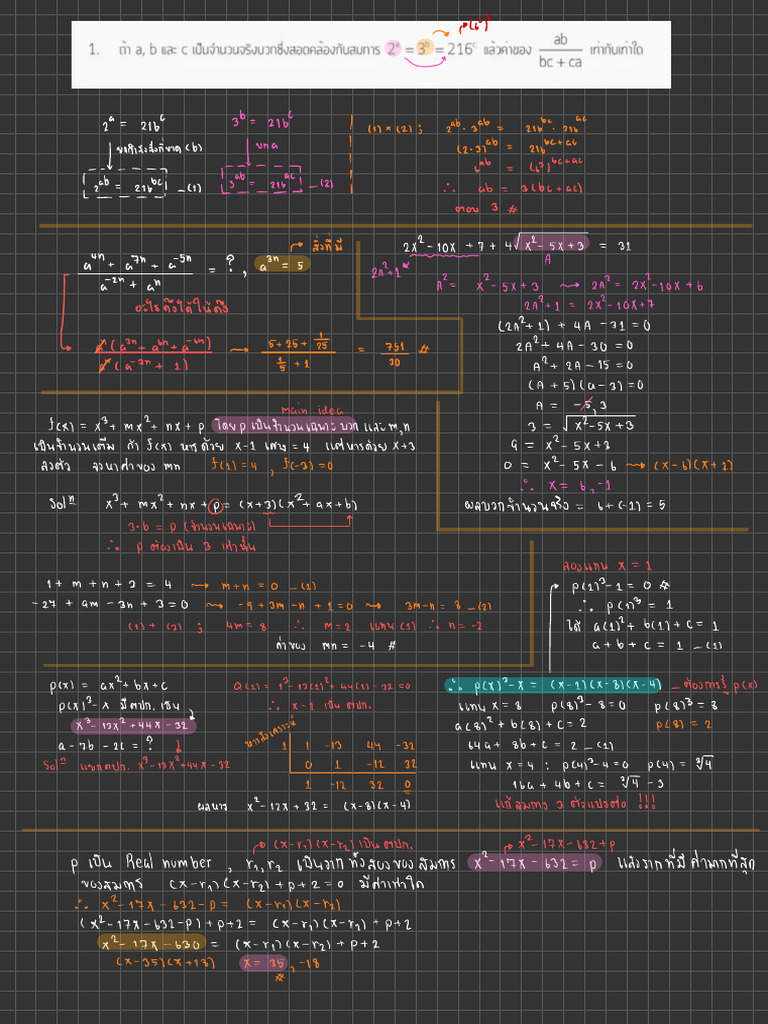 → p(6³)ᶜ
1. ถ้า a, b และ c เป็นจำนวนจริงบวกซึ่งสอดคล้องกับสมการ 2ᵃ = 3ᵇ = 216ᶜ แล้วค่าของ ab/(bc + ca) เท่ากับเท่าใด
2ᵃ = 216ᶜ
ยกกำลังสองที่ขาด (b)
2ᵃᵇ = 216ᵇᶜ —(1)
3ᵇ = 216ᶜ
ยก a
3ᵃᵇ = 216ᵃᶜ —(2)
(1) × (2) ; 2ᵃᵇ · 3ᵃᵇ = 216ᵇᶜ · 216ᵃᶜ
(2·3)ᵃᵇ = 216ᵇᶜ⁺ᵃᶜ
6ᵃᵇ = (6³)ᵇᶜ⁺ᵃᶜ
∴ ab = 3(bc + ac)
ตอบ 3 #
→ สิ่งที่มี
(a⁴ⁿ + a⁷ⁿ + a⁻⁵ⁿ)/(a⁻²ⁿ + aⁿ) = ? , a³ⁿ = 5
อะไรดึงได้ให้ดึง
a(a³ⁿ + a⁶ⁿ + a⁻⁶ⁿ)/a(a⁻³ⁿ + 1) → (5 + 25 + 1/25)/(1/5 + 1) = 751/30 #
2x² - 10x + 7 + 4√(x² - 5x + 3) = 31
A
2A² + 1
A² = x² - 5x + 3 → 2A² = 2x² - 10x + 6
2A² + 1 = 2x² - 10x + 7
(2A² + 1) + 4A - 31 = 0
2A² + 4A - 30 = 0
A² + 2A - 15 = 0
(A + 5)(a - 3) = 0
A = -5, 3
3 = √(x² - 5x + 3)
9 = x² - 5x + 3
0 = x² - 5x - 6 → (x - 6)(x + 1)
∴ x = 6, -1
ผลบวกจำนวนจริง = 6 + (-1) = 5
main idea
f(x) = x³ + mx² + nx + p โดย p เป็นจำนวนเฉพาะบวก และ m,n
เป็นจำนวนเต็ม ถ้า f(x) หารด้วย x-1 เศษ = 4 แต่หารด้วย x+3
ลงตัว จงหาค่าของ mn f(1) = 4 , f(-3) = 0
Solⁿ x³ + mx² + nx + p = (x + 3)(x² + ax + b)
3·b = p (จำนวนเฉพาะ)
∴ p ต้องเป็น 3 เท่านั้น
1 + m + n + 3 = 4 → m + n = 0 —(1)
-27 + 9m - 3n + 3 = 0 → -9 + 3m - n + 1 = 0 → 3m - n = 8 —(2)
(1) + (2) ; 4m = 8 ∴ m = 2 แทน (1) ∴ n = -2
ค่าของ mn = -4 #
ลองแทน x = 1
p(1)³ - 1 = 0 #
∴ p(1)³ = 1
ได้ a(1)² + b(1) + c = 1
a + b + c = 1 —(1)
p(x) = ax² + bx + c
p(x)³ - x มี ตปก. เป็น
x³ - 13x² + 44x - 32
a - 7b - 2c = ?
Solⁿ แยกตปก. x³ - 13x² + 44x - 32
Q(1) = 1³ - 13(1)² + 44(1) - 32 = 0
∴ x - 1 เป็น ตปก.
หารสังเคราะห์
1 1 -13 44 -32
0 1 -12 32
1 -12 32 0
ผลหาร x² - 12x + 32 = (x - 8)(x - 4)
∴ p(x)³ - x = (x - 1)(x - 8)(x - 4) — ต้องการรู้ p(x)
แทน x = 8 p(8)³ - 8 = 0 p(8)³ = 8
a(8)² + b(8) + c = 2 p(8) = 2
64a + 8b + c = 2 —(2)
แทน x = 4 ; p(4)³ - 4 = 0 p(4) = ∛4
16a + 4b + c = ∛4 - 3
แก้สมการ 3 ตัวแปรต่อ !!!
→ (x - r₁)(x - r₂) เป็น ตปก. → x² - 17x - 632 + p
p เป็น Real number , r₁, r₂ เป็นรากทั้งสองของสมการ x² - 17x - 632 = p แล้วรากที่มีค่ามากที่สุด
ของสมการ (x - r₁)(x - r₂) + p + 2 = 0 มีค่าเท่าใด
∴ x² - 17x - 632 - p = (x - r₁)(x - r₂)
(x² - 17x - 632 - p) + p + 2 = (x - r₁)(x - r₂) + p + 2
x² - 17x - 630 = (x - r₁)(x - r₂) + p + 2
(x - 35)(x + 18) x = 35 , -18
#